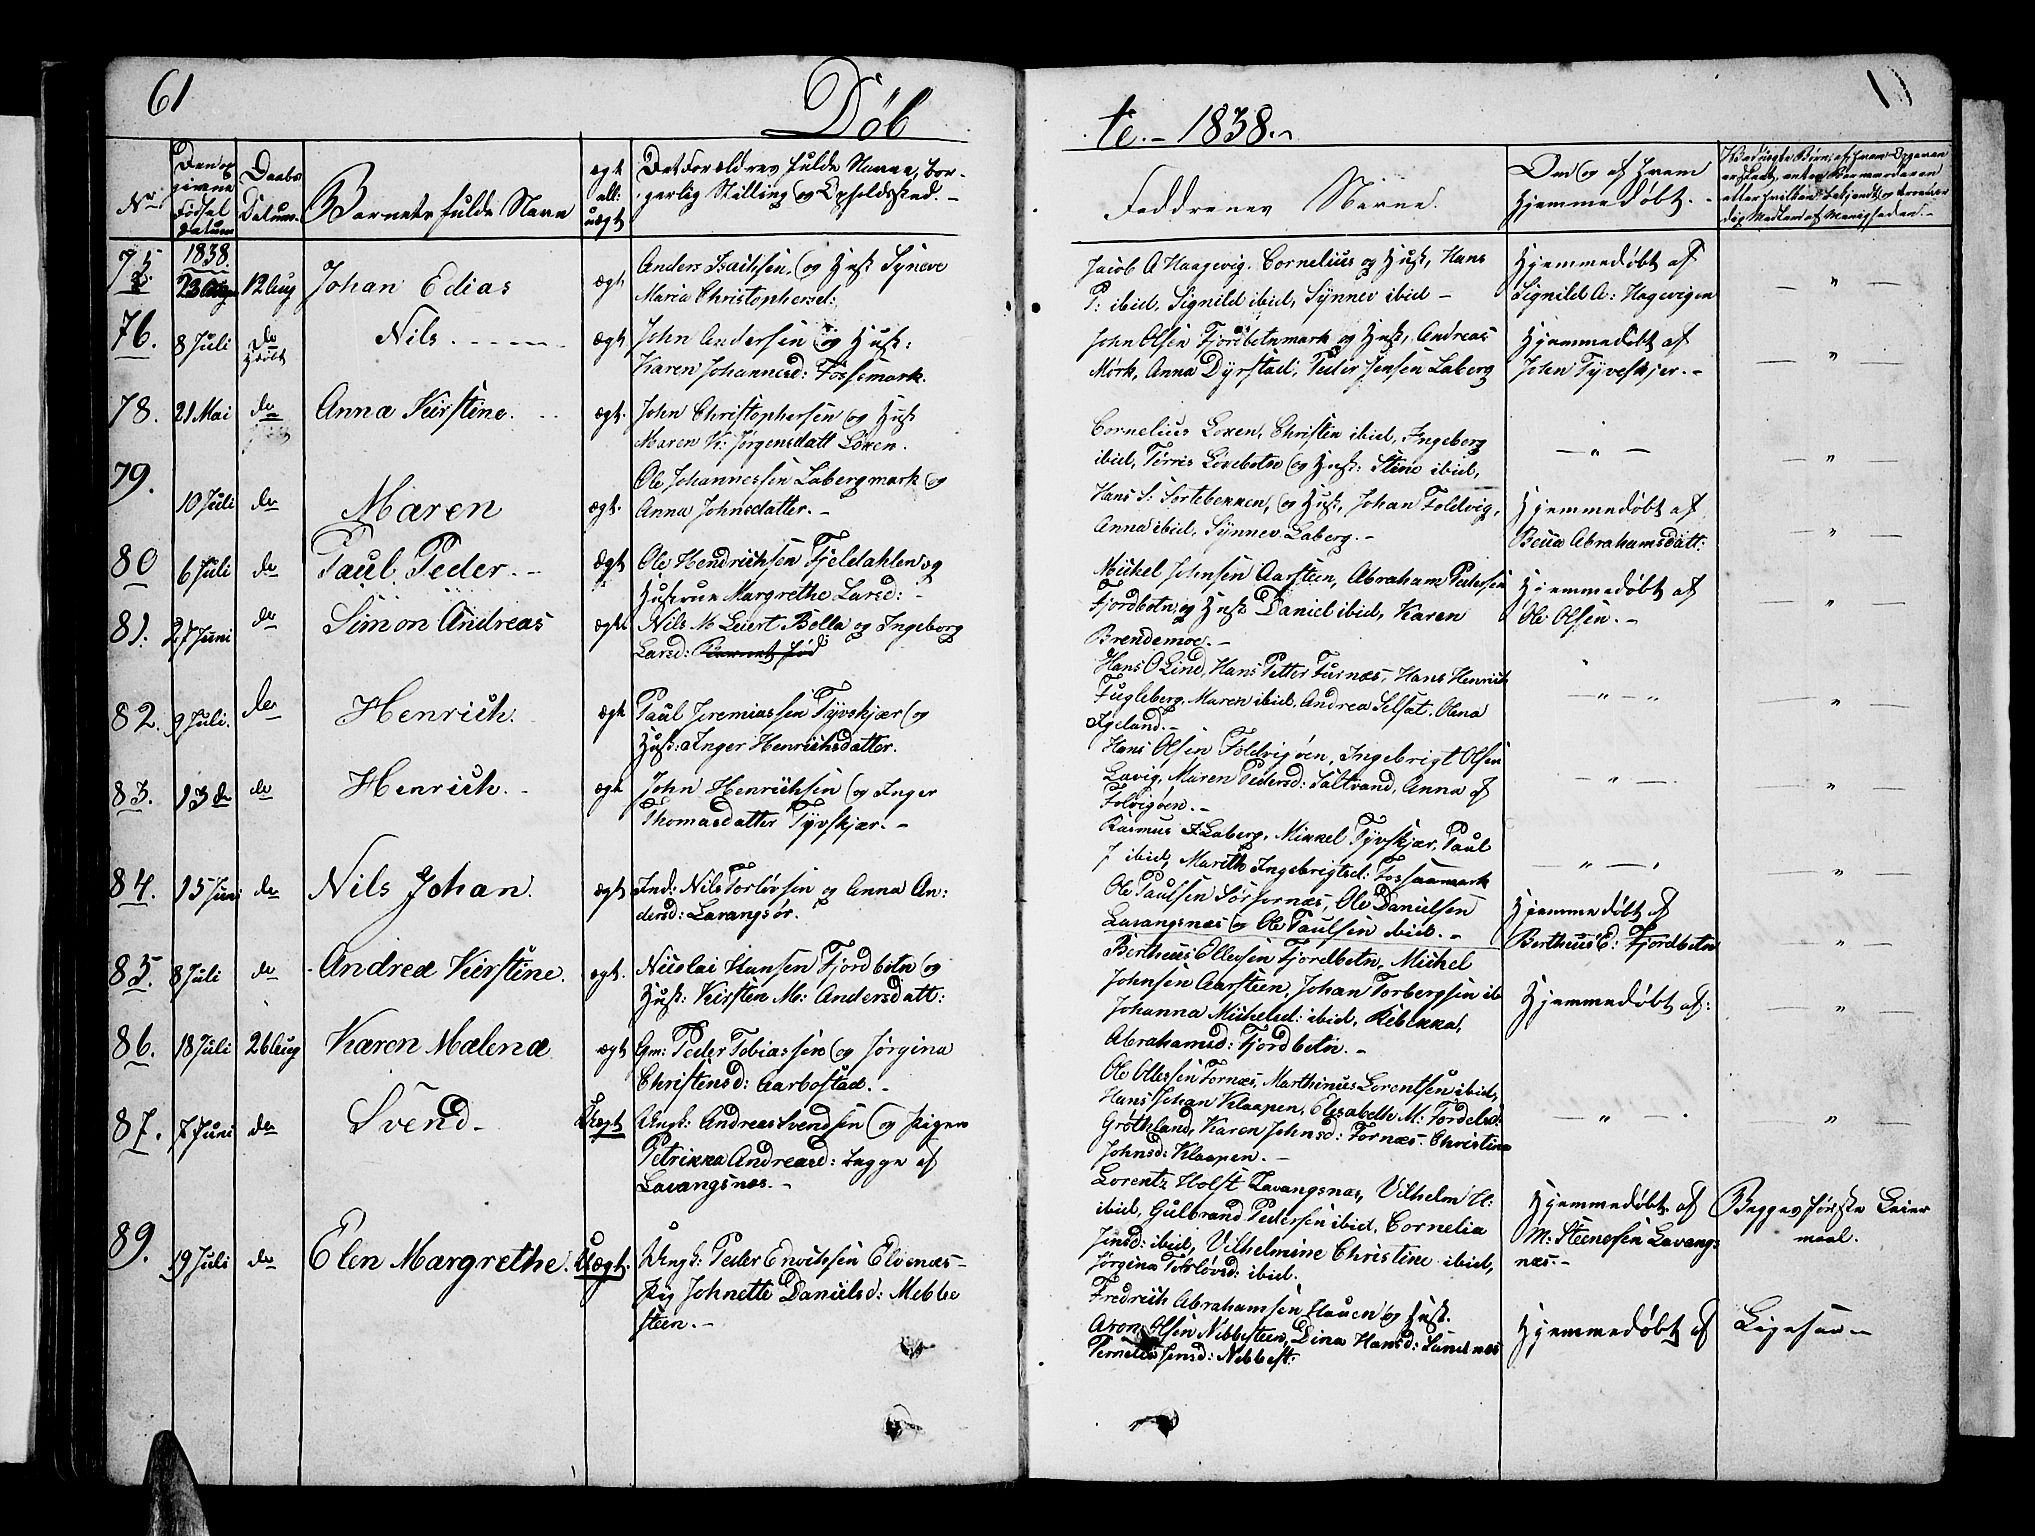 61
Döb
te. - 1838. -
No
Den op
givene
Födsel
datum
Daabs
Datum.
Barnets fulde Navn
ægt
all:
uægt
Det Forældres fulde Navne, bor-
gerlig Stilling og Opholdssted. -
Faddrenes Navne.
Om og af hvem
Hjemmedöbt. -
75
1838.
12 Aug
Johan Edias
ægt
Anders Isachsen, og Hust Syneve
Maria Christophersd:
Jacob A Haagevig. Cornelius og Hust, Hans
P: ibid, Signild ibid, Synnev ibid -
Hjemmedöbt af
Signild A: Hagevigen
— " —
76.
8 Juli
do
Nils
ægt
John Andersen og Hust:
Karen Johannesd: Fossmark.
John Olsen Fjordbotnmark og Hust, Andreas
Mörk, Anna Dyrstad, Peder Jensen Laberg
Hjemmedöbt af
John Tyveskjer. -
— " —
78.
21 Mai
do
Anna Kirstine.
ægt.
John Christophersen og Hust
Maren K: Jörgensdatt Löxen.
Cornelius Loxen, Christen ibid, Ingeborg
ibid, Törris Löxebotn og Hust: Stine ibid,
— " —
— " —
79.
10 Juli
do
Maren
ægt.
Ole Johannessen Labergmark og
Anna Johnsdatter. -
Hans S: Sortebekken, og Hust, Johan Foldvig,
Anna ibid, Synnev Laberg. -
Hjemmedöbt af
Beua Abrahamsdatt:
— " —
80
6 Juli
do
Paul Peder. -
Ægt
Ole Hendrichsen Fjeldahlen og
Hustrue Margrethe Larsd: -
Michel Johnsen Aarsteen, Abraham Pedersen
Fjordbotn, og Hust Daniel ibid, Karen
Brendemoe. -
Hjemmedöbt af
Ole Olsen. -
— " —
81.
27 Juni
do
Simon Andreas
ægte
Nils M Leiert Bella og Ingeborg
Larsd:
Hans O Lind, Hans Petter Furnæs, Hans Henrich
Fugleberg, Maren ibid, Andrea Selsat, Olena
Ageland. -
— " — "
— " —
82.
9 Juli.
do
Henrich.
ægt
Paul Jeremiassen Tyvskjær og
Hust: Inger Henrichsdatter.
Hans Olsen Foldvigöen, Ingebrigt Olsen
Lavig, Maren Pedersd: Saltvand, Anna af
Folvigöen. -
— " —
— " —
83.
13 do
do
Henrich. -
ægt
John Henrichsen og Inger
Thomasdatter Tyvskjær. -
Rasmus I Laberg, Mikkel Tyvskjær, Paul
J ibid, Mareth Ingebrigtsd: Fossaamark
— " —
— " —
84.
15 Juni
do
Nils Johan.
ægt
Ind: Nils Torlövsen og Anna An-
dersd: Lavangsör.
Ole Paulsen Sörfornæs, Ole Danielsen
Lavangsnæs og Ole Paulsen ibid. -
Hjemmedöbt af
Bertheus E: Fjordbotn
— " —
85.
8 Juli
do
Andrea Kirstine.
ægt.
Nicolai Hansen Fjordbotn og
Hust: Kirsten M: Andersdatt:
Bertheus Ellevsen Fjordbotn, Michel
Johnsen Aarsteen, Johan Torbergsen ib
Johanna Michelsd: ibid, Rebekka,
Abrahamsd: Fjordbotn. -
Hjemmedöbt af:
— " —
86.
18 Juli
26 Aug
Karen Malena
ægt
Gm: Peder Tobiassen og Jörgina
Christensd: Aarbostad. -
Ole Ollessen Fornæs, Marthinus Lorentsen ibid,
Hans Johan Klaapen, Elisabeth M: Tordelsd:
Grothland, Karen Johnsd: Fornæs. Christina
Johnsd: Klaapen. -
— " —
"
87.
7 Juni
do
Svend -
Uægt
Ungk: Andreas Svendsen og Pigen
Petrikka Andreasd: begge af
Lavangsnæs. -
Lorentz Holst Lavangsnæs, Vilhelm H:
ibid, Gulbrand Pedersen ibid, Cornelia
Jensd: ibid, Vilhelmine Christine ibid,
Jörgina Torlövsd: ibid.
Hjemmedöbt af
M: Steensen Lavangs
næs. -
Begges förste Leier
maal.
89.
19 Juli
do
Elen Margrethe.
Uægt.
Ungk: Peder Enochsen Elvenæs -
Pig Johnette Danielsd: Nebbe
steen. -
Fredrich Abrahamsen Hauen og Hust.
Aron Olsen Nebbesteen, Dina Hansd: Sandnæs
Pernella Jensd: Nebbest:
Hjemmedöbt af
Ligesaa -